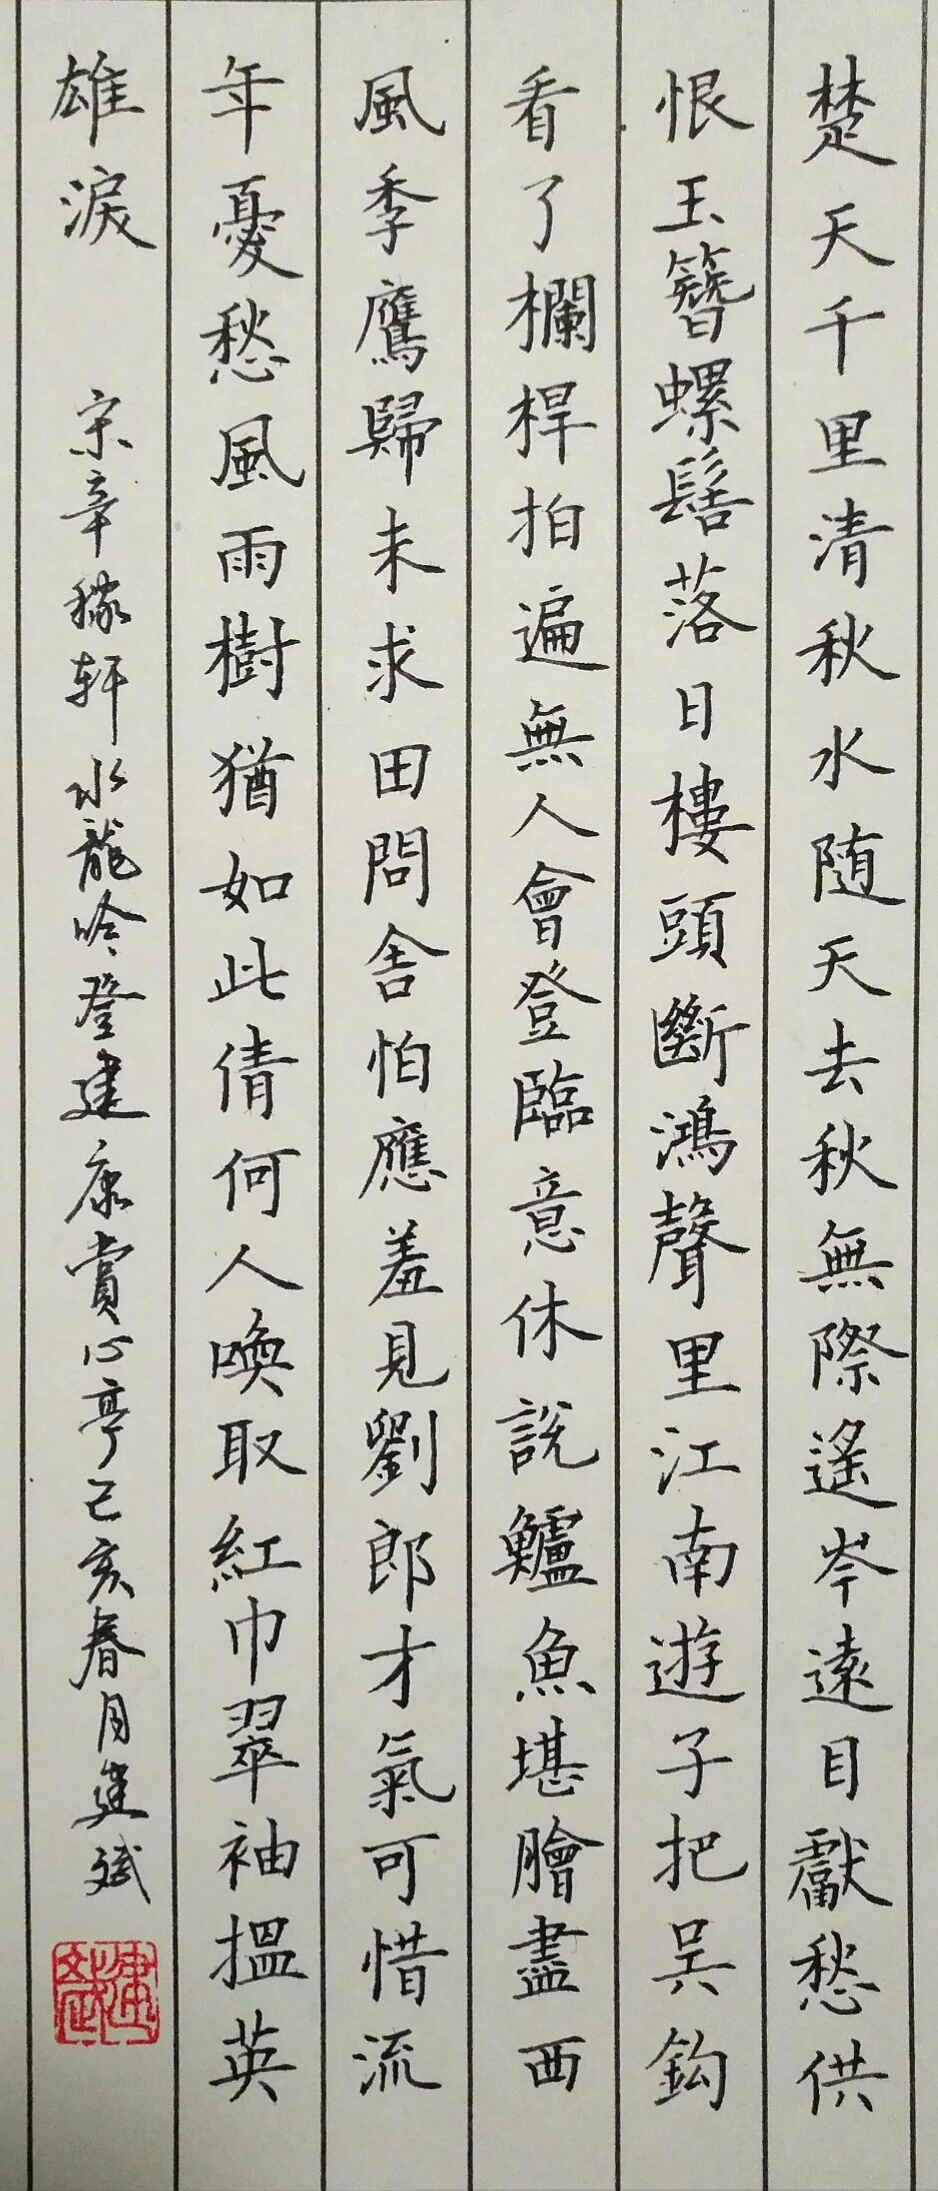 楚天千里清秋水随天去秋無際遙岑遠目獻愁供
恨玉簪螺髻落日樓頭斷鴻聲里江南遊子把吴鈎
看了欄桿拍遍無人會登臨意休說鱸魚堪膾盡西
風季鷹歸未求田問舍怕應羞見劉郎才氣可惜流
年憂愁風雨樹猶如此倩何人喚取紅巾翠袖搵英
雄淚
宋辛稼轩水龍吟登建康賞心亭己亥春月建斌
建斌